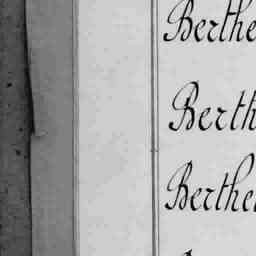 Berthe
Berth
Berthe